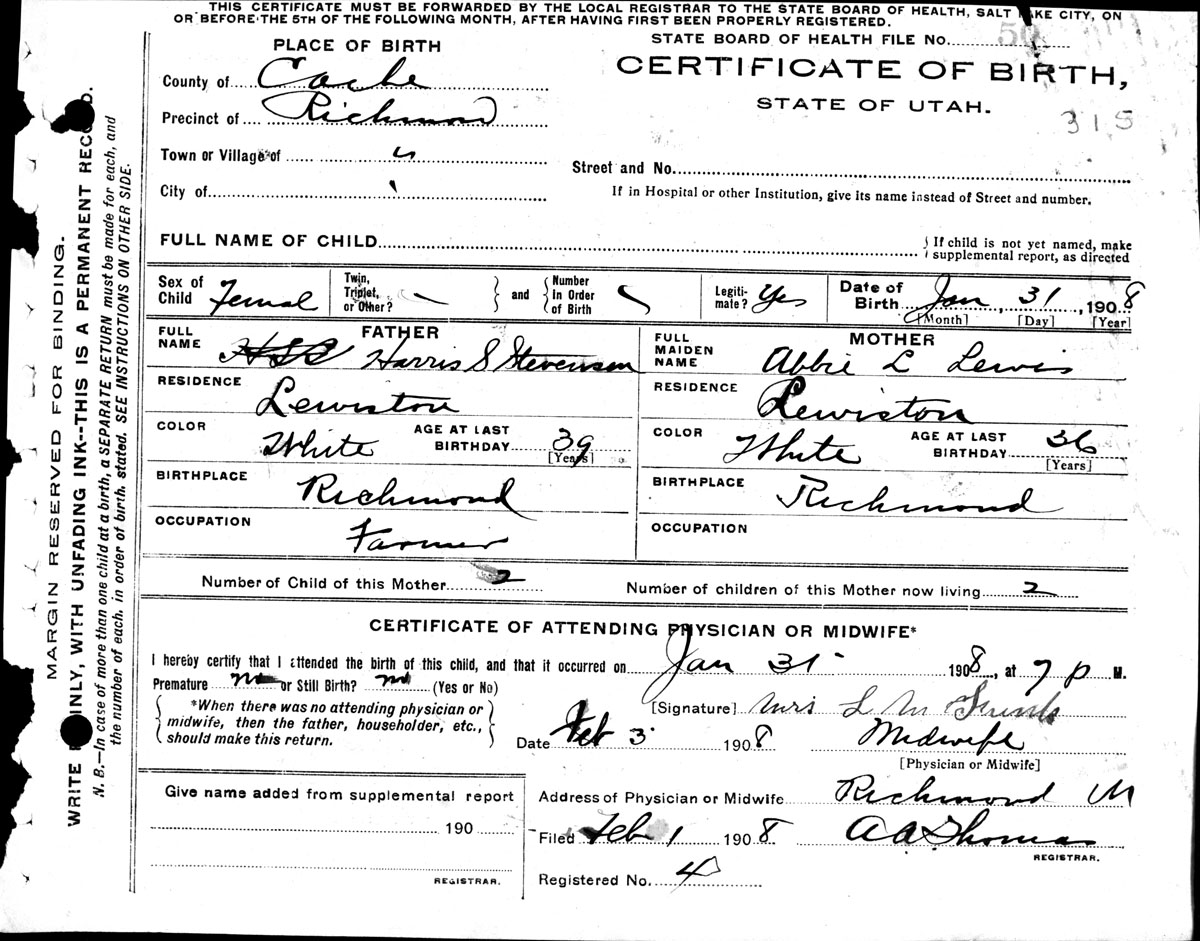 THIS CERTIFICATE MUST BE FORWARDED BY THE LOCAL REGISTRAR TO THE STATE BOARD OF HEALTH, SALT LAKE CITY, ON
OR BEFORE THE 5TH OF THE FOLLOWING MONTH, AFTER HAVING FIRST BEEN PROPERLY REGISTERED.
PLACE OF BIRTH
STATE BOARD OF HEALTH FILE No.
County of Cache
CERTIFICATE OF BIRTH,
STATE OF UTAH.
315
Precinct of Richmond
Town or Village of "
Street and No.
City of
If in Hospital or other Institution, give its name instead of Street and number.
FULL NAME OF CHILD
If child is not yet named, make
supplemental report, as directed
Sex of Child Femal
Twin, Triplet, or Other? —
and
Number In Order of Birth
Legiti- mate? Yes
Date of Birth Jan 31, 1908
[Month] [Day] [Year]
FATHER
FULL NAME Harris S Stevenson
MOTHER
FULL MAIDEN NAME Abbie L Lewis
RESIDENCE Lewiston
RESIDENCE Lewiston
COLOR White AGE AT LAST BIRTHDAY 39 [Years]
COLOR White AGE AT LAST BIRTHDAY 36 [Years]
BIRTHPLACE Richmond
BIRTHPLACE Richmond
OCCUPATION Farmer
OCCUPATION
Number of Child of this Mother 2
Number of children of this Mother now living 2
CERTIFICATE OF ATTENDING PHYSICIAN OR MIDWIFE*
I hereby certify that I attended the birth of this child, and that it occurred on Jan 31 1908, at 7 p M.
Premature no or Still Birth? no (Yes or No)
*When there was no attending physician or
midwife, then the father, householder, etc.,
should make this return.
[Signature] Mrs L M
Date Feb 3 1908
Midwife
[Physician or Midwife]
Give name added from supplemental report
190
REGISTRAR.
Address of Physician or Midwife Richmond
Filed Feb 1 1908 A A Thomas
REGISTRAR.
Registered No. 4
MARGIN RESERVED FOR BINDING.
WRITE PLAINLY, WITH UNFADING INK--THIS IS A PERMANENT RECORD.
N. B.—In case of more than one child at a birth, a SEPARATE RETURN must be made for each, and
the number of each, in order of birth, stated. SEE INSTRUCTIONS ON OTHER SIDE.